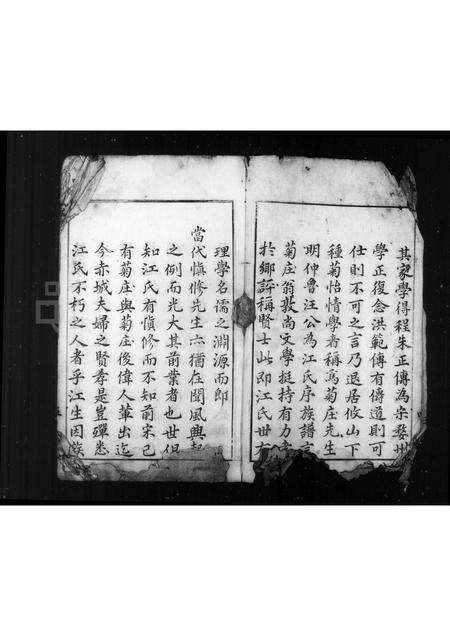 其家學得程朱正傳為宋婺州
學正復念洪範傳有傳道則可
仕則不可之言乃退居攸山下
種菊怡情學者稱為菊庄先生
明仲魯汪公為江氏序族譜
菊庄翁敦尚文學挺持有力
於鄉評稱賢士此即江氏世
理學名儒之淵源而即
當代慎修先生亦猶在聞風興起
之例而光大其前業者也世但
知江氏有慎修而不知前宋已
有菊庄與菊庄後偉人輩出迄
今赤城夫婦之賢孝是豈殫悉
江氏不朽之人者乎江生因族